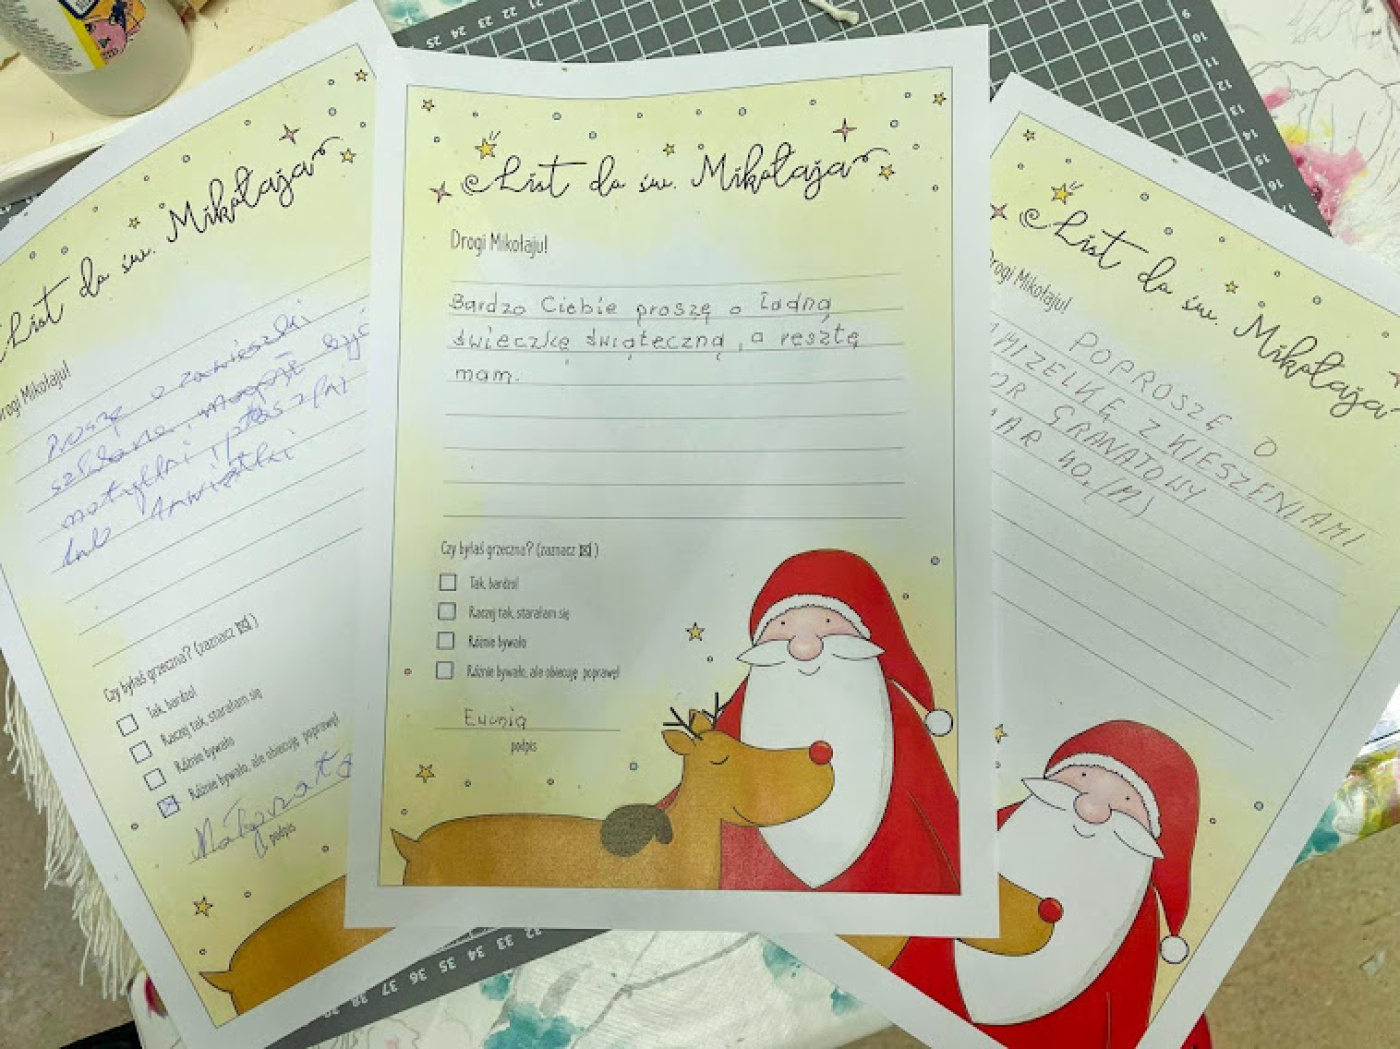 List do św. Mikołaja
Drogi Mikołaju!
Proszę o zawieszki
szklane, mogą być
motylki i ptaszki
lub kwiatki
Czy byłaś grzeczna? (zaznacz ☒)
Tak, bardzo!
Raczej tak, starałam się
Różnie bywało
Różnie bywało, ale obiecuję poprawę!
Małgorzata
podpis
List do św. Mikołaja
Drogi Mikołaju!
Bardzo Ciebie proszę o ładną
świeczkę świąteczną, a resztę
mam.
Czy byłaś grzeczna? (zaznacz ☒)
Tak, bardzo!
Raczej tak, starałam się
Różnie bywało
Różnie bywało, ale obiecuję poprawę!
podpis
List do św. Mikołaja
Drogi Mikołaju!
POPROSZĘ O
AMIZELKĘ Z KIESZENIAMI
OR GRANATOWY
AR 40. (M)
25 24 22 21
9
10
11
12
13
14
15
16
17
32 33 34 35 36 37 38